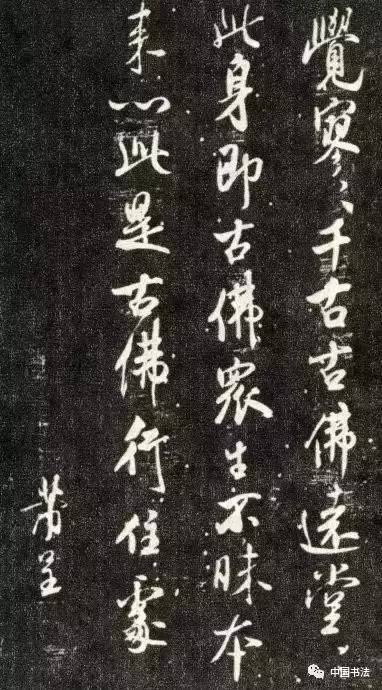 覺寥々千古古佛遠堂々
此身即古佛眾生不昧本
来心此是古佛行住處
芾呈
中国书法